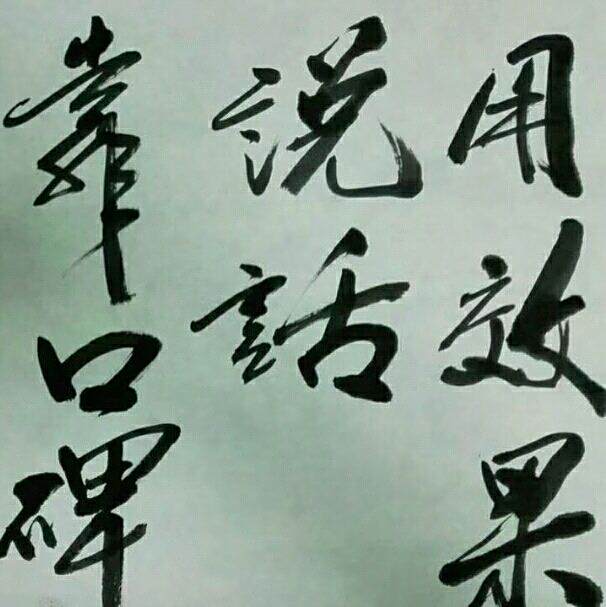 用效果
説話
靠口碑